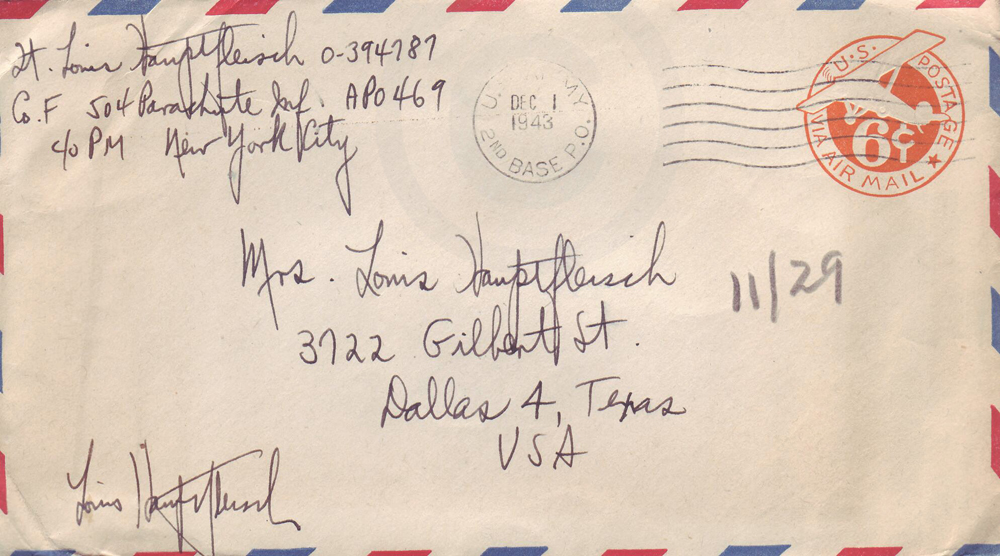 Lt. Louis Hauptfleisch 0-394787
Co. F 504 Parachute Inf. APO 469
c/o PM New York City
U. ARMY
DEC 1
1943
2ND BASE P.O.
U.S. POSTAGE
6¢
VIA AIR MAIL
Mrs. Louis Hauptfleisch
11/29
3722 Gilbert St.
Dallas 4, Texas
USA
Louis Hauptfleisch